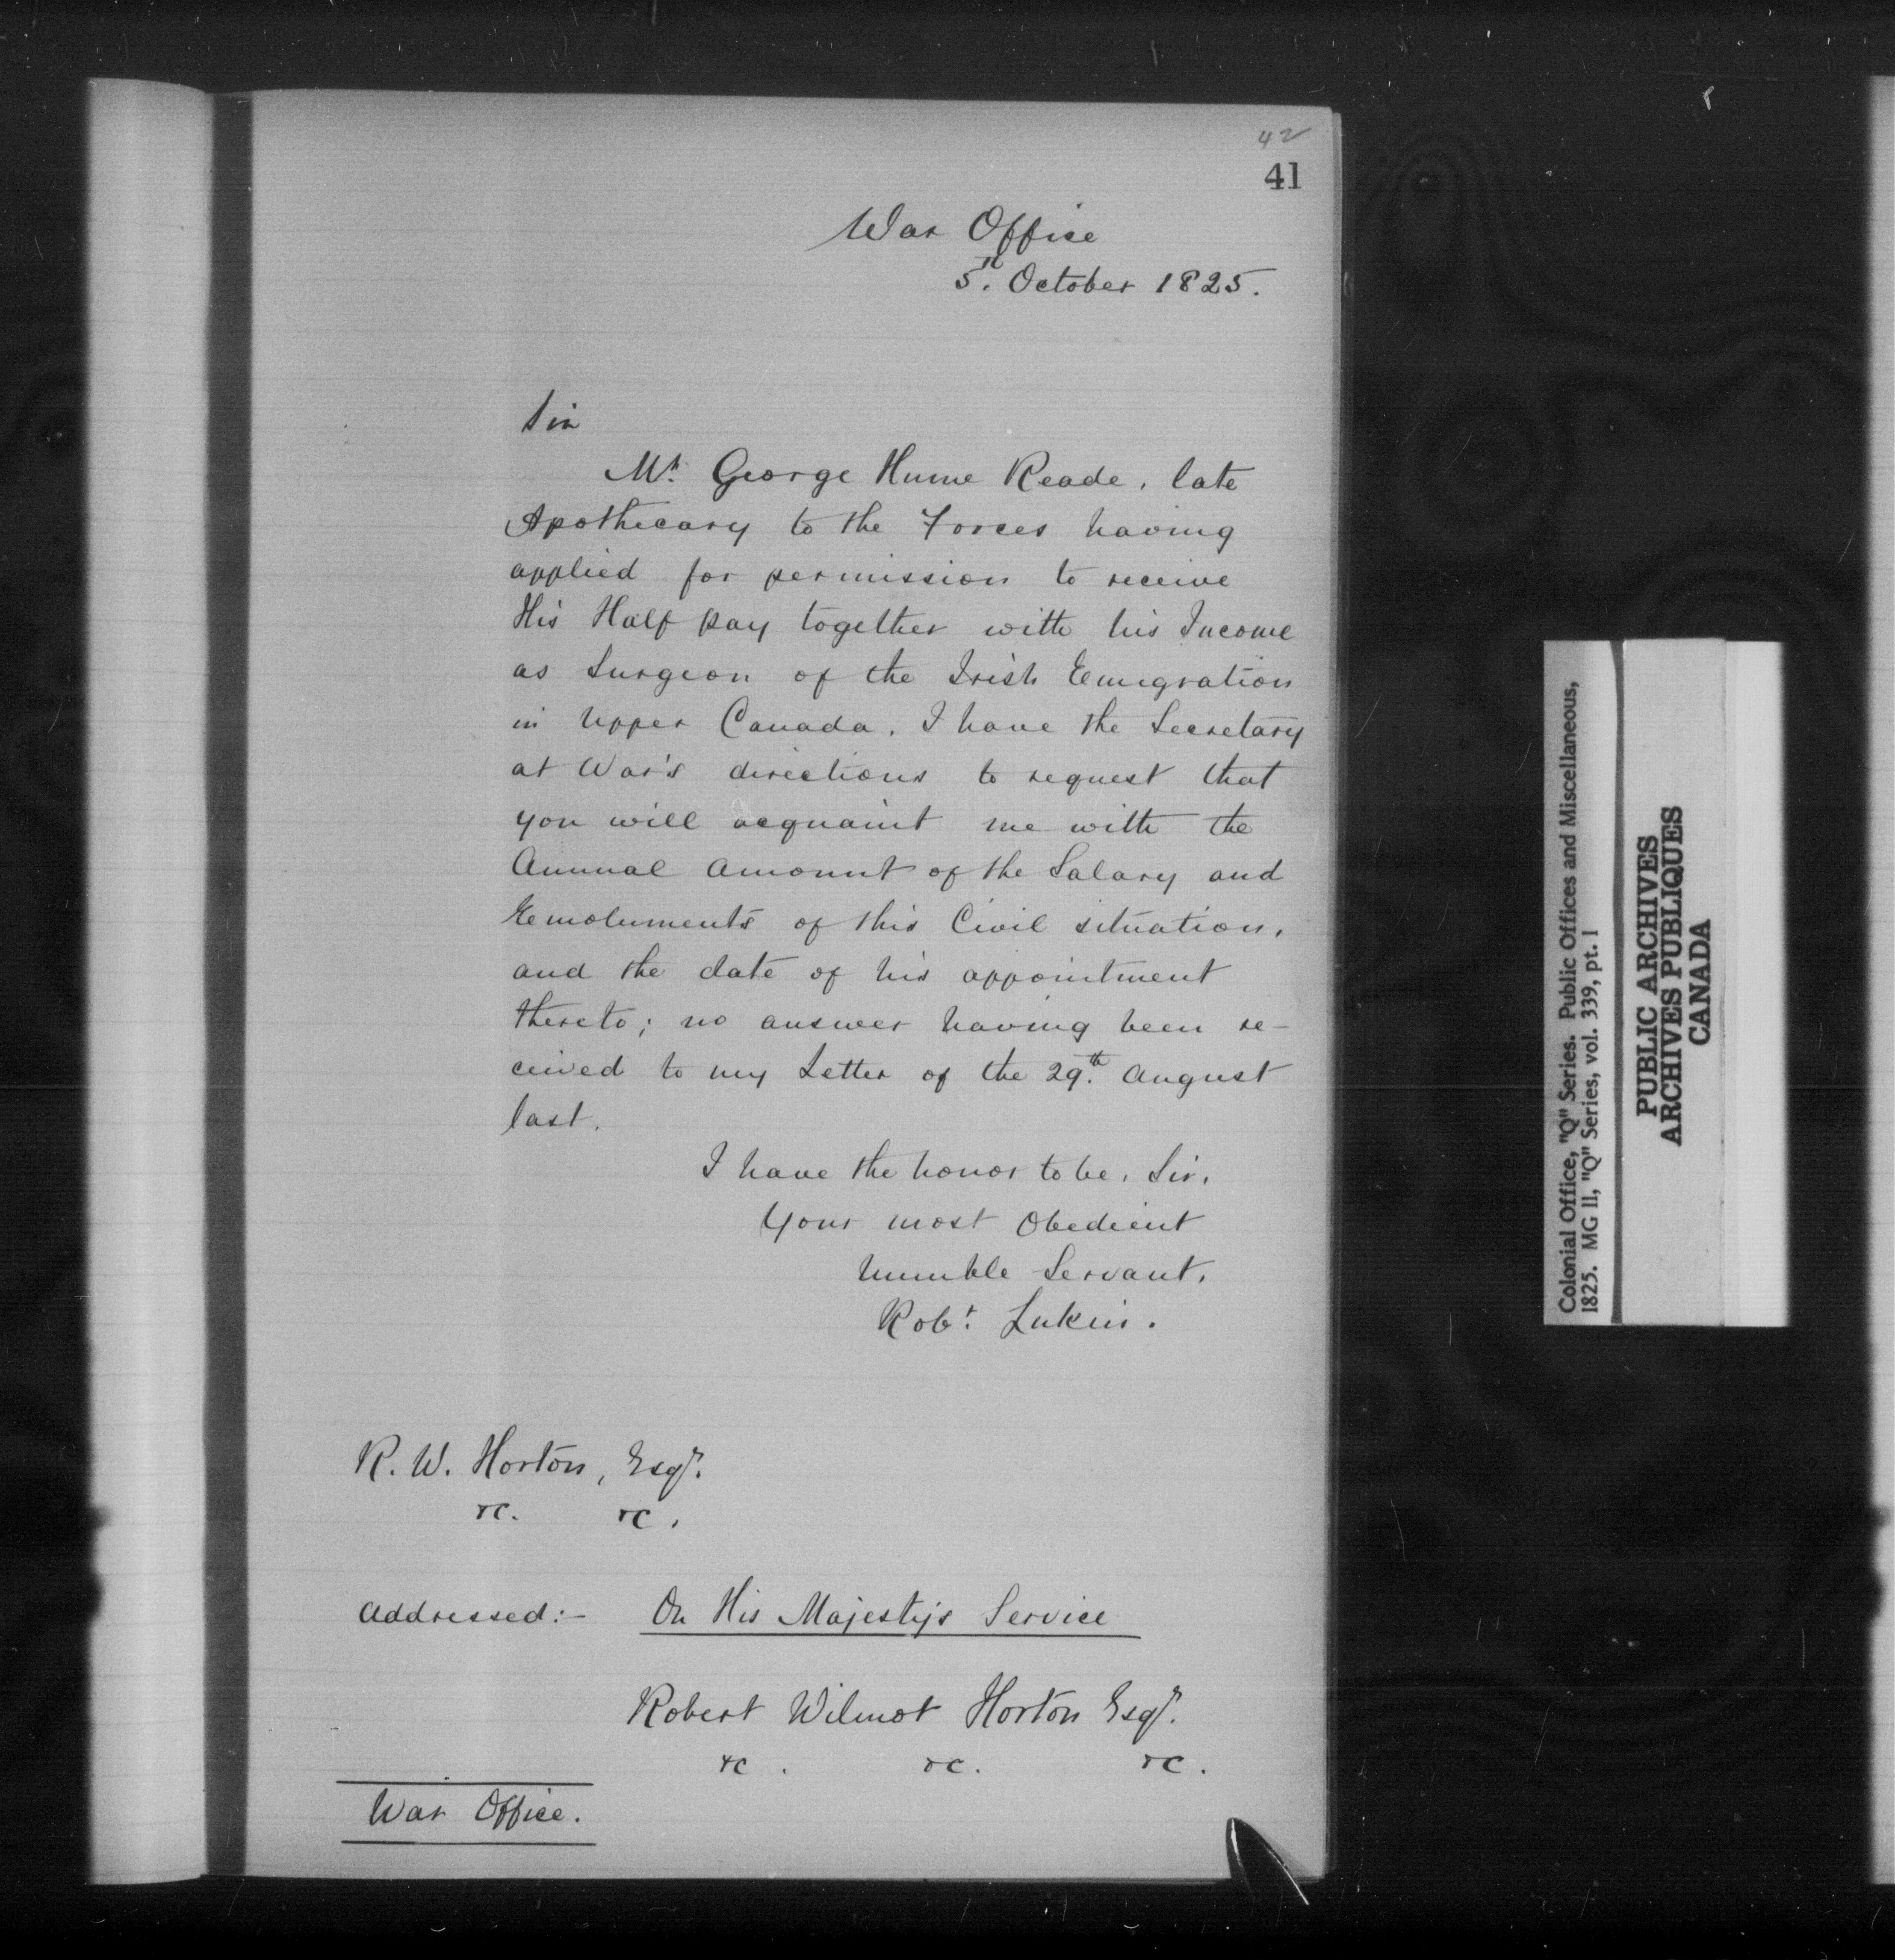 42
41
War Office
5th. October 1825.
Sir
Mr. George Hume Reade, late
Apothecary to the Forces having
applied for permission to receive
His Half pay together with his Income
as Surgeon of the Irish Emigration
in Upper Canada, I have the Secretary
at War's directions to request that
you will acquaint me with the
Annual Amount of the Salary and
Emoluments of this Civil situation,
and the date of his appointment
thereto; no answer having been re-
ceived to my Letter of the 29th. August
last.
I have the honor to be, Sir,
Your most Obedient
humble Servant,
Robt. Lukin.
R. W. Horton, Esqr.
&c. &c.
Addressed:- On His Majesty's Service
Robert Wilmot Horton Esqr.
&c. &c. &c.
War Office.
Colonial Office, "Q" Series. Public Offices and Miscellaneous,
1825. MG 11, "Q" Series, vol. 339, pt. 1
PUBLIC ARCHIVES
ARCHIVES PUBLIQUES
CANADA